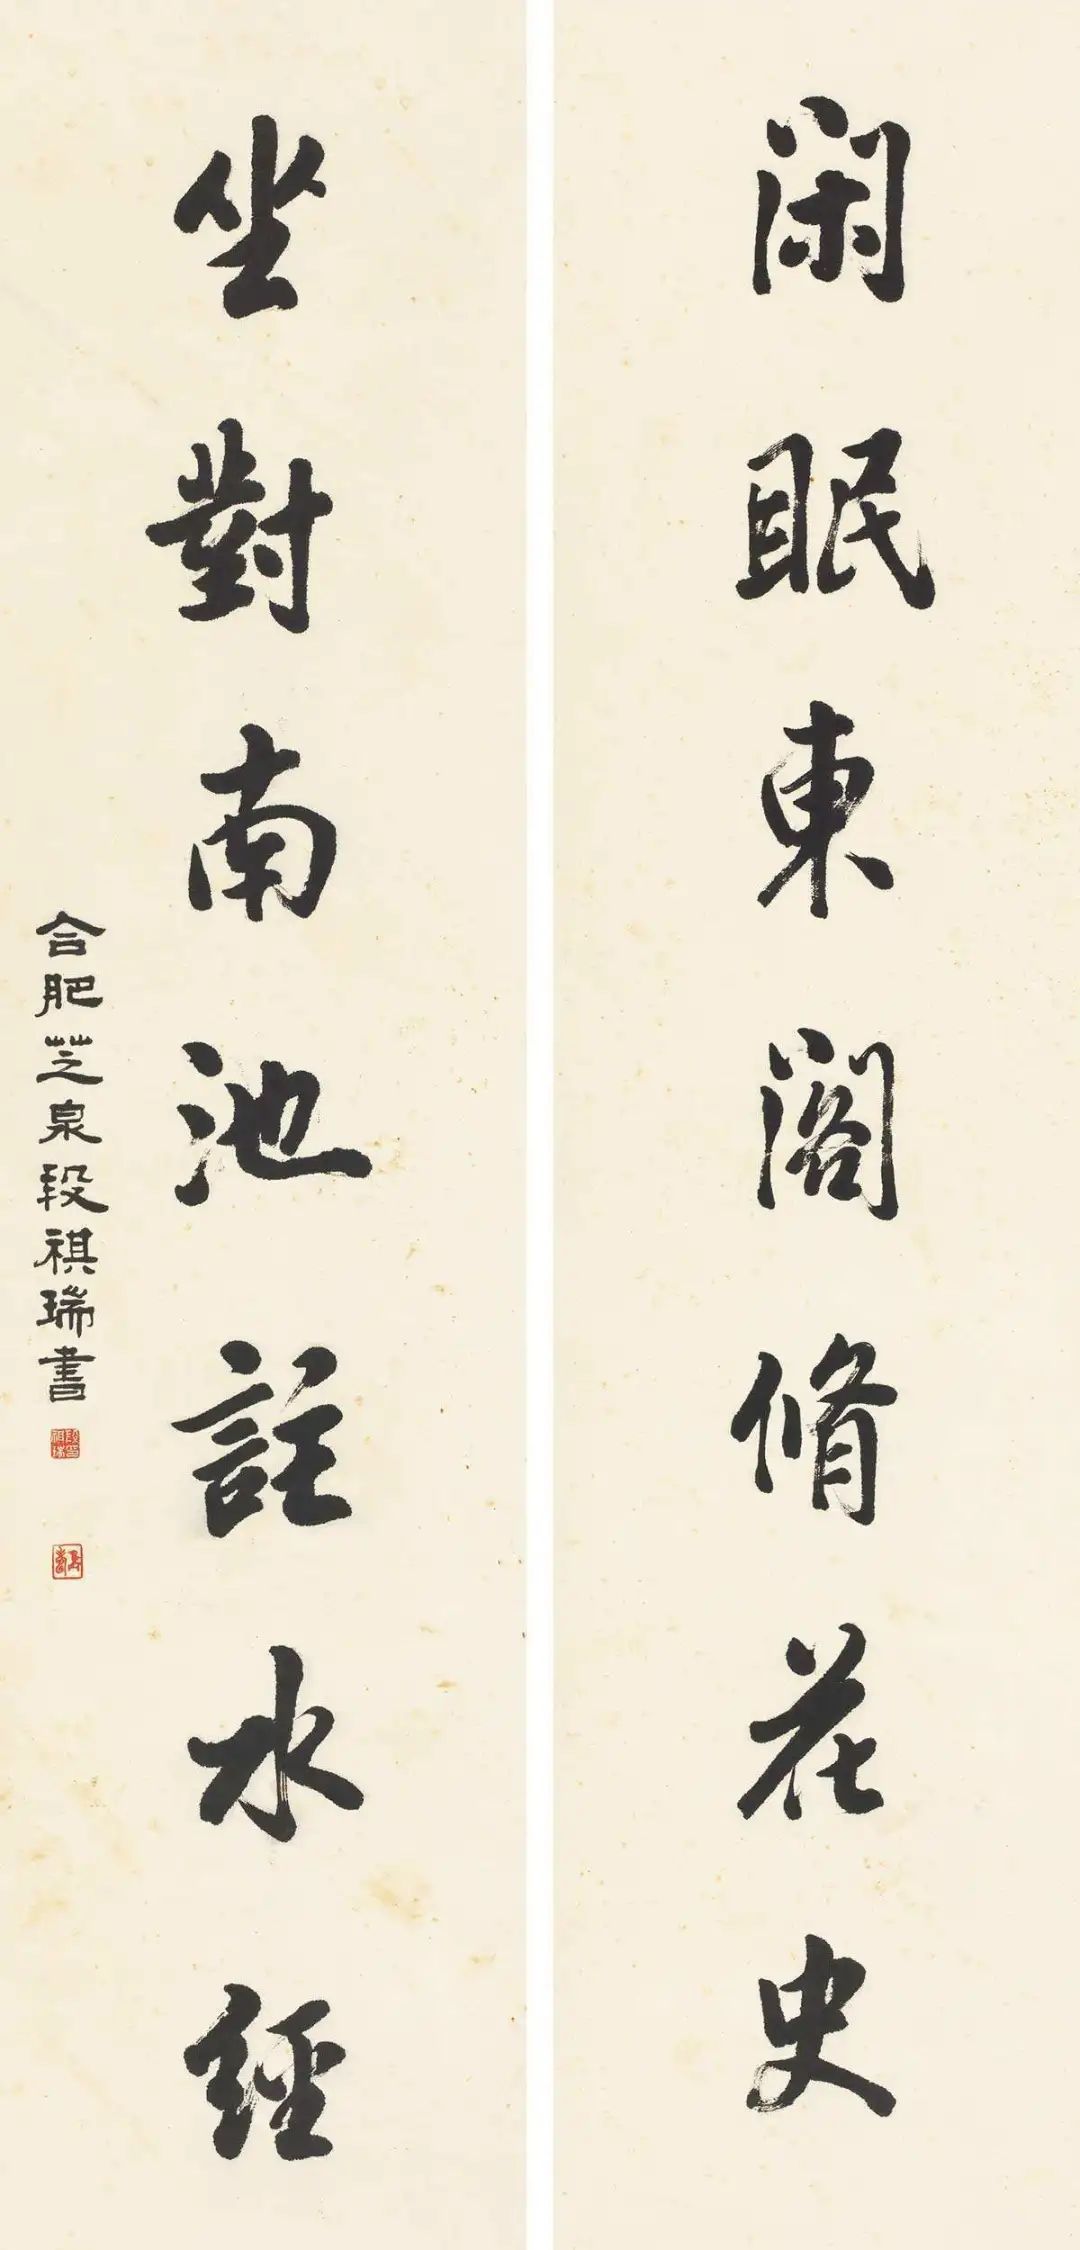 闲眠東閣脩花史
坐對南池註水經
合肥芝泉段祺瑞書